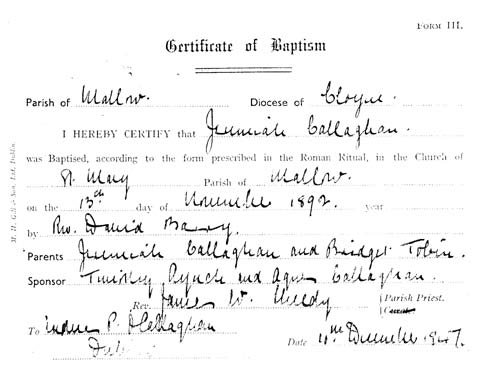 FORM III.
Certificate of Baptism
Parish of Mallow. Diocese of Cloyne.
I HEREBY CERTIFY that Jeremiah Callaghan.
was Baptised, according to the form prescribed in the Roman Ritual, in the Church of
St Mary Parish of Mallow.
on the 13th day of November 1892. year
by Rev. David Barry
Parents Jeremiah Callaghan and Bridget Tobin.
Sponsor Timothy and Agnes Callaghan.
Rev. James W. Parish Priest.
To P. O'Callaghan
Date 11th December 1947.
M. H. Gill & Son, Ltd. Dublin